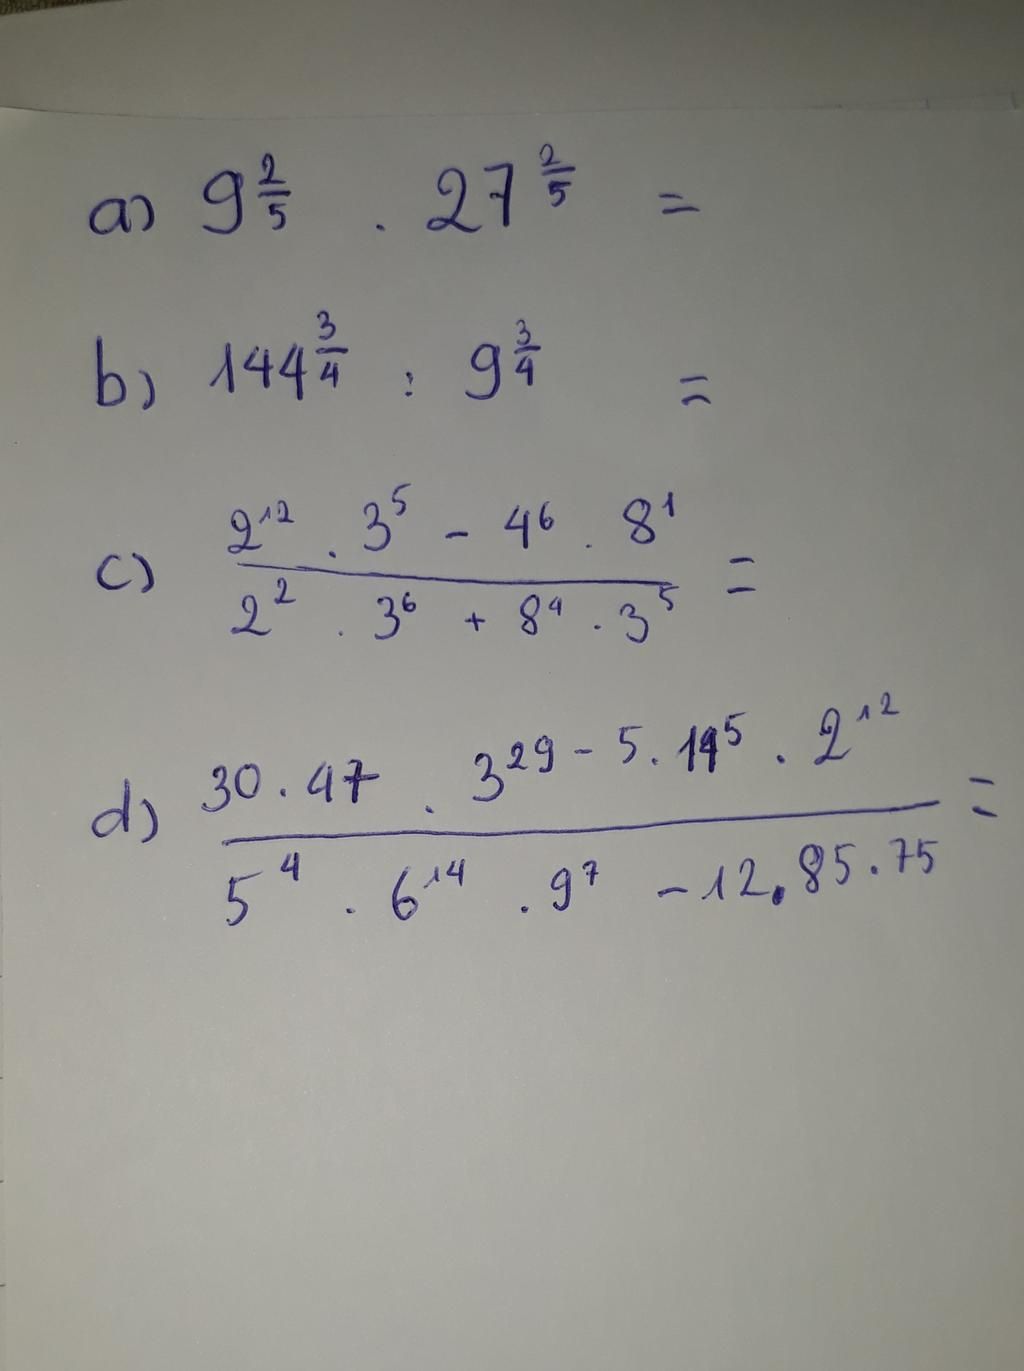 a) 9^(2/5) . 27^(2/5) =
b) 144^(3/4) : 9^(3/4) =
2^12 . 3^5 - 4^6 . 8^1
c) ―――――――――― =
2^2 . 3^6 + 8^4 . 3^5
30 . 47 . 3^29 - 5 . 14^5 . 2^12
d) ―――――――――― =
5^4 . 6^14 . 9^7 - 12 . 85 . 75